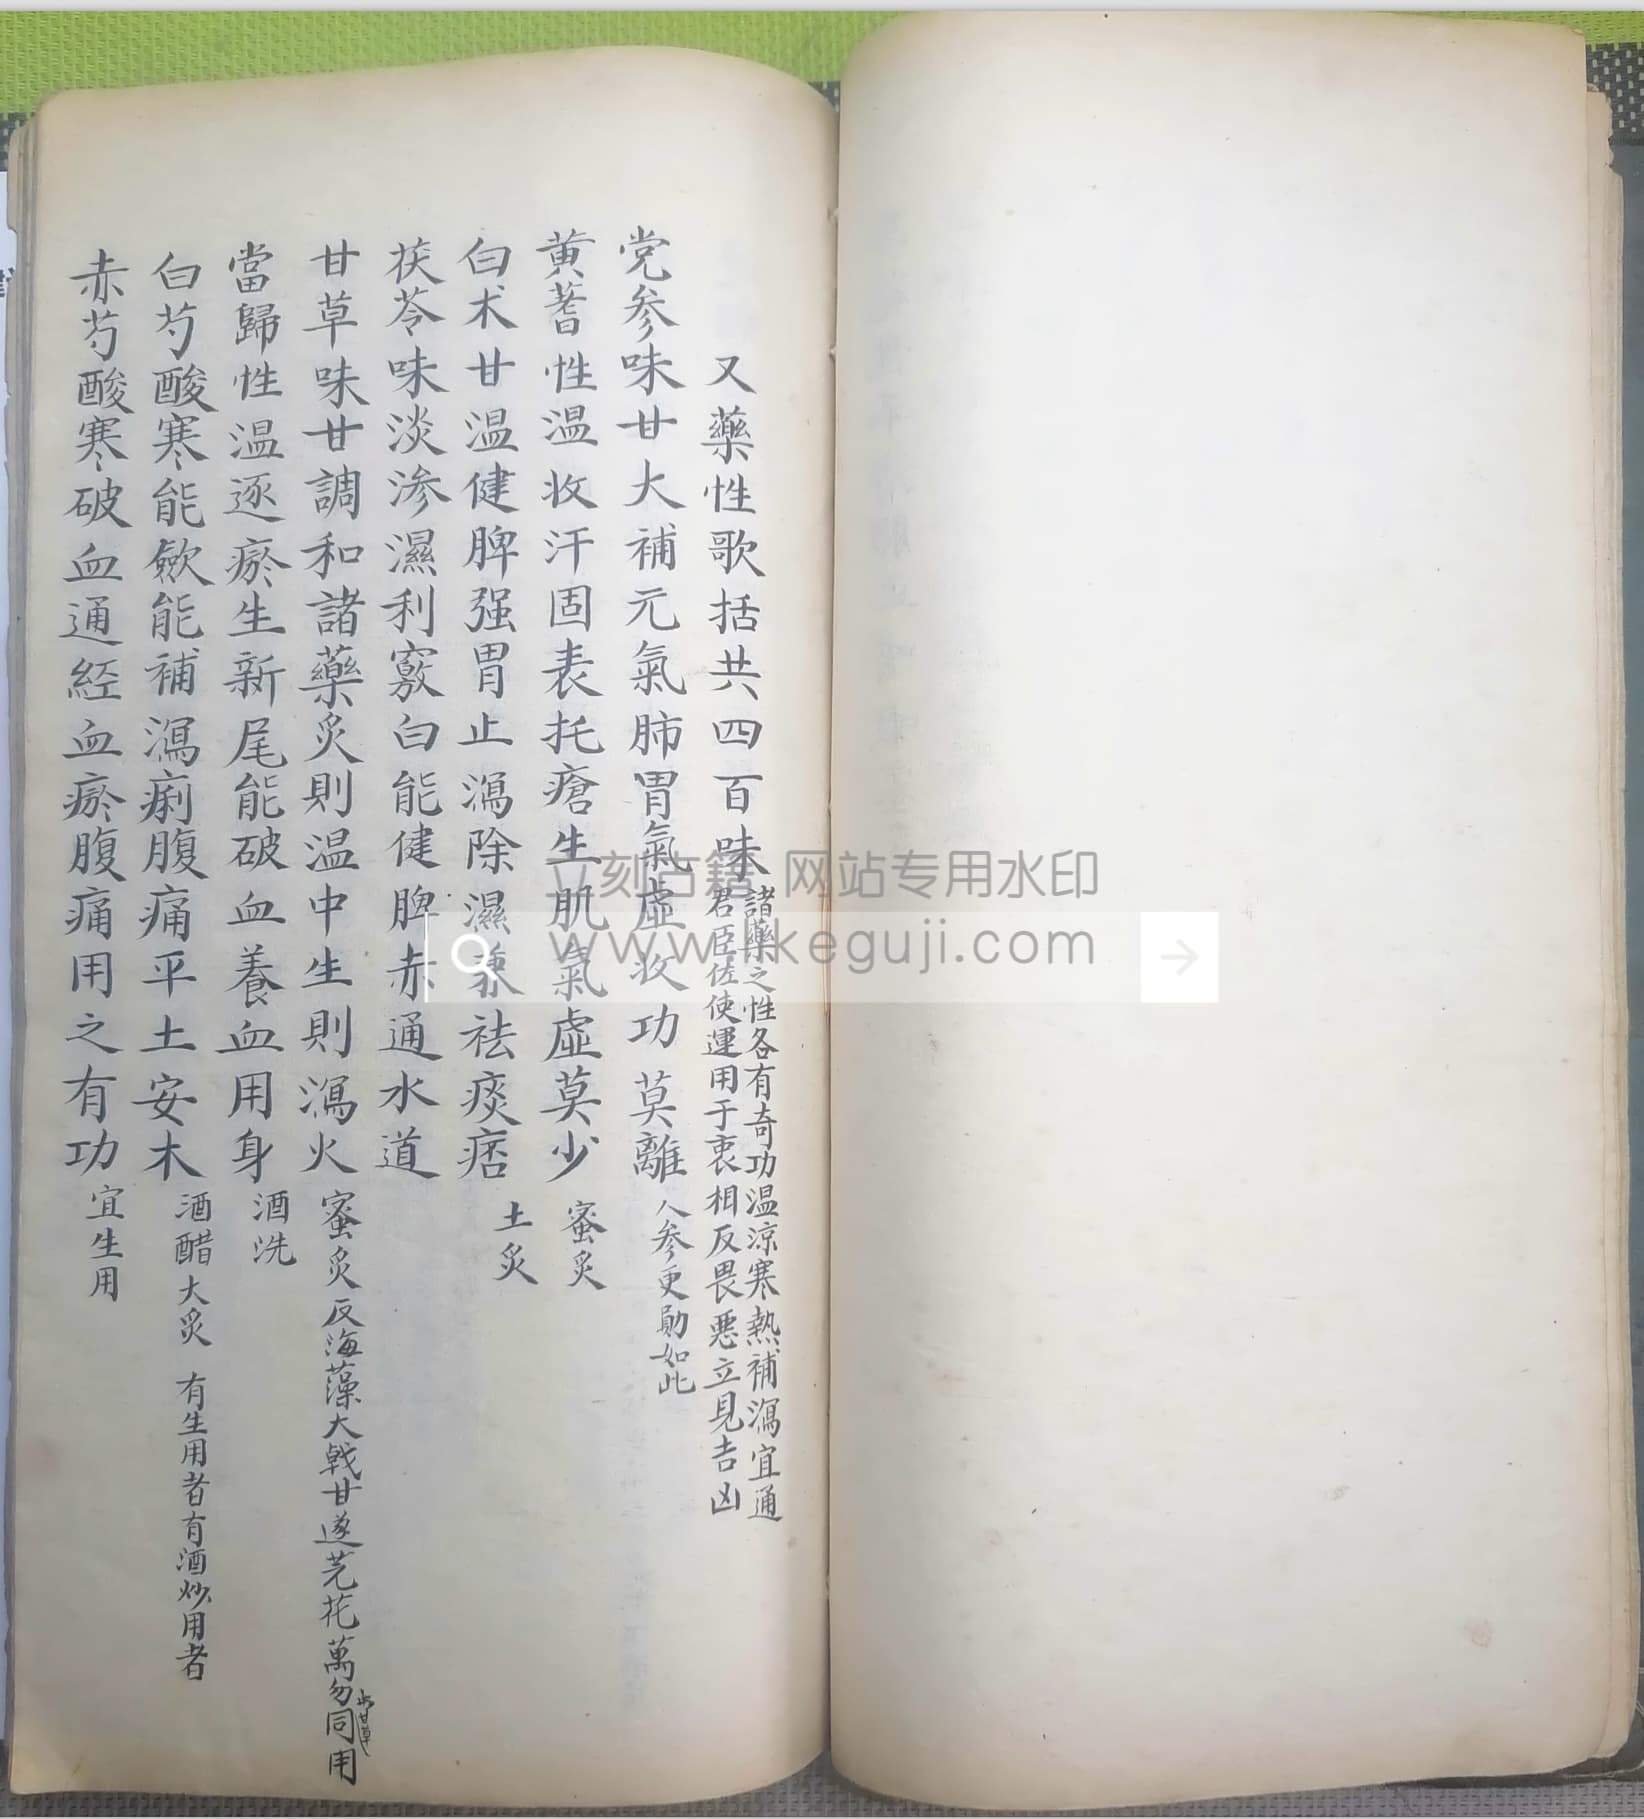 又藥性歌括共四百味
諸藥之性各有奇功温涼寒熱補瀉宜通
君臣佐使運用于衷相反畏悪立見吉凶
党参味甘大補元氣肺胃氣虛收功莫離 人参更勛如此
黄蓍性温收汗固表托瘡生肌氣虛莫少 蜜炙
白术甘温健脾强胃止瀉除濕兼祛痰痞 土炙
茯苓味淡渗濕利竅白能健脾赤通水道
甘草味甘調和諸藥炙則温中生則瀉火 蜜炙反海藻大戟甘遂芫花萬勿同用
當歸性温逐瘀生新尾能破血養血用身 酒洗
白芍酸寒能歛能補瀉痢腹痛平土安木 酒醋大炙 有生用者有酒炒用者
赤芍酸寒破血通經血瘀腹痛用之有功 宜生用
立刻古籍 网站专用水印
www.lkguji.com